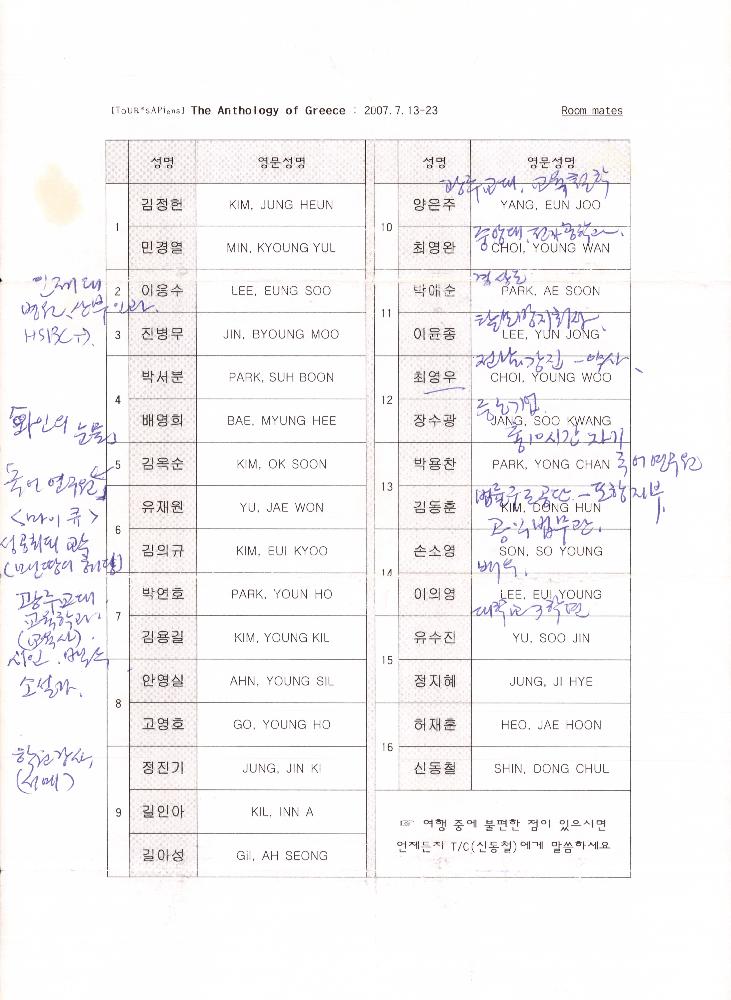 [ToUR*sAPiens] The Anthology of Greece : 2007.7.13-23 Room mates
성명 영문성명
1 김정헌 KIM, JUNG HEUN
민경열 MIN, KYOUNG YUL
2 이응수 LEE, EUNG SOO
3 진병무 JIN, BYOUNG MOO
4 박서분 PARK, SUH BOON
배명희 BAE, MYUNG HEE
5 김옥순 KIM, OK SOON
6 유재원 YU, JAE WON
김의규 KIM, EUI KYOO
7 박연호 PARK, YOUN HO
김용길 KIM, YOUNG KIL
8 안영실 AHN, YOUNG SIL
고영호 GO, YOUNG HO
9 정진기 JUNG, JIN KI
길인아 KIL, INN A
길아성 Gil, AH SEONG
인제대
병원,
「와인의 눈물」
독어 연구원
<마이 퀴>
성공회대 교수
광주교대
교육학과
(교육사).
시인.
소설가.
학원강사,
성명 영문성명
광주교대, 교육철학
10 양은주 YANG, EUN JOO
중앙대, 전자공학과.
최영완 CHOI, YOUNG WAN
경상도
11 박애순 PARK, AE SOON
이윤종 LEE, YUN JONG
전남강진 - 약사
12 최영우 CHOI, YOUNG WOO
장수광 JANG, SOO KWANG
13 박용찬 PARK, YONG CHAN 국어연구원
법률구조공단 - 포항지부
김동훈 KIM, DONG HUN
공익법무관.
14 손소영 SON, SO YOUNG
배우.
이의영 LEE, EUI YOUNG
대학교3학년
15 유수진 YU, SOO JIN
정지혜 JUNG, JI HYE
16 허재훈 HEO, JAE HOON
신동철 SHIN, DONG CHUL
☞ 여행 중에 불편한 점이 있으시면
언제든지 T/C(신동철)에게 말씀하세요